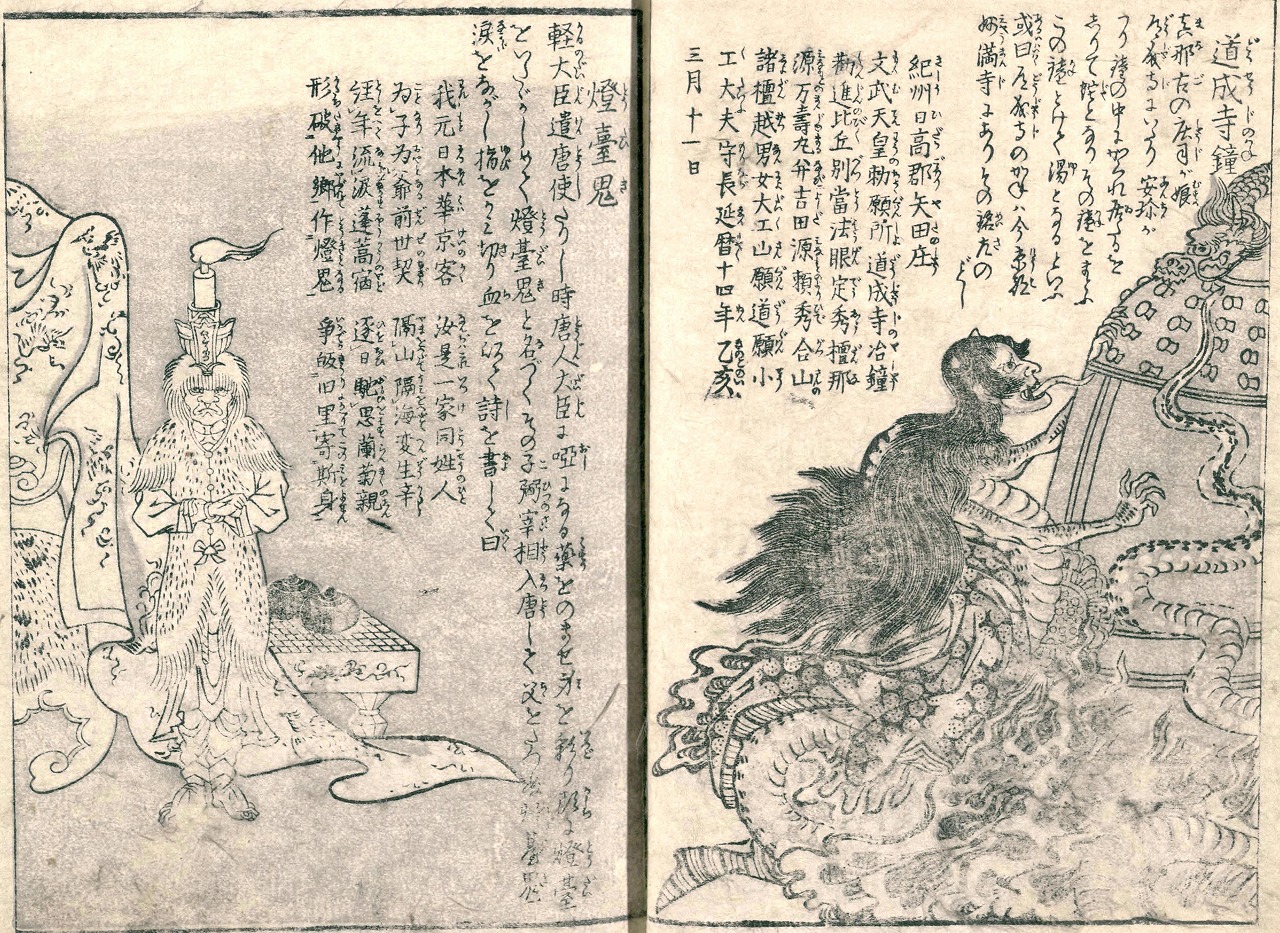 道成寺鐘
真那古の庄司が娘
道成寺にいたり安珍が
つり鐘の中にかくれ居たるを
しりて蛇となりその鐘をまとふ
この鐘とけて湯となるといふ
或曰道成寺のかねハ今京都
妙満寺にありその銘左の
ごとし
紀州日高郡矢田庄
文武天皇勅願所道成寺冶鐘
勧進比丘別當法眼定秀檀那
源万壽丸并吉田源頼秀合山
諸檀越男女大工山願道願小
工大夫守長延暦十四年乙亥
三月十一日
燈臺鬼
軽大臣遣唐使たりし時唐人大臣に唖になる薬をのませ身を彩り頭に燈臺
といたゞかしめて燈臺鬼と名づくその子弼宰相入唐して父をたづぬ燈臺鬼
涙をながし指をかみ切り血を以て詩を書して曰
我元日本華京客 汝是一家同姓人
為子為爺前世契 隔山隔海変生辛
経年流涙蓬蒿宿 逐日馳思蘭菊親
形破他郷作燈鬼 争皈旧里寄斯身